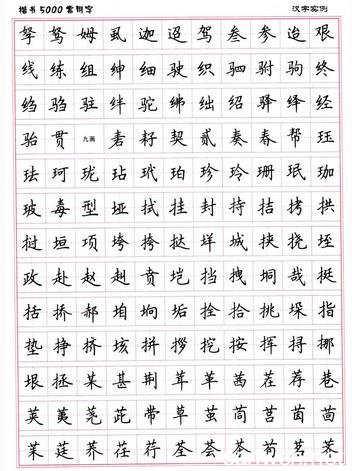 楷书5000常用字 汉字实例
孥 驽 姆 虱 迦 迢 驾 叁 参 迨 艰
线 练 组 绅 细 驶 织 驷 驸 驹 终
绉 驺 驻 绊 驼 绋 绌 绍 驿 绎 经
骀 贯 九画 砉 籽 契 贰 奏 春 帮 珏
珐 珂 珑 玷 玳 珀 珍 玲 珊 珉 珈
玻 毒 型 垭 拭 挂 封 持 拮 拷 拱
挝 垣 项 垮 挎 挞 垟 城 挟 挠 垤
政 赴 赵 赳 贲 垲 挡 拽 垌 哉 挺
括 挢 郝 垍 垧 垢 拴 拾 挑 垛 指
垫 挣 挤 垓 拼 拶 挖 按 挥 挦 挪
垠 拯 某 甚 荆 茸 革 茜 茬 荐 巷
荚 荑 荛 荜 带 草 茧 茼 莒 茵 茴
茱 莛 荞 荏 荇 荃 荟 茶 荀 茗 荠